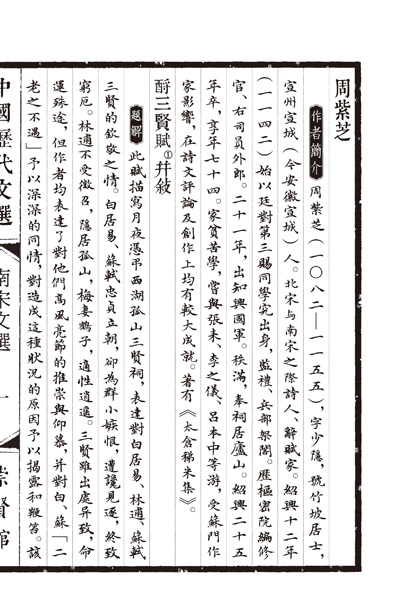 周紫芝
作者簡介 周紫芝(一〇八二—一一五五),字少隱,號竹坡居士,
宣州宣城(今安徽宣城)人。北宋與南宋之際詩人、辭賦家。紹興十二年
(一一四二)始以廷對第三賜同學究出身,監禮、兵部架閣。歷樞密院編修
官、右司員外郎。二十一年,出知興國軍。秩滿,奉祠居廬山。紹興二十五
年卒,享年七十四。家貧苦學,嘗與張耒、李之儀、呂本中等游,受蘇門作
家影響,在詩文評論及創作上均有較大成就。著有《太倉稊米集》。
酹三賢賦①并敍
題解 此賦描寫月夜憑弔西湖孤山三賢祠,表達對白居易、林逋、蘇軾
三賢的欽敬之情。白居易、蘇軾忠貞立朝,卻為群小嫉恨,遭讒見逐,終致
窮厄。林逋不受徵召,隱居孤山,梅妻鶴子,適性逍遙。三賢雖出處异致,命
運殊途,但作者均表達了對他們高風亮節的推崇與仰慕,并對白、蘇「二
老之不遇」予以深深的同情,對造成這種狀況的原因予以揭露和鞭笞。該
中國歷代文選 南宋文選 一 崇賢館